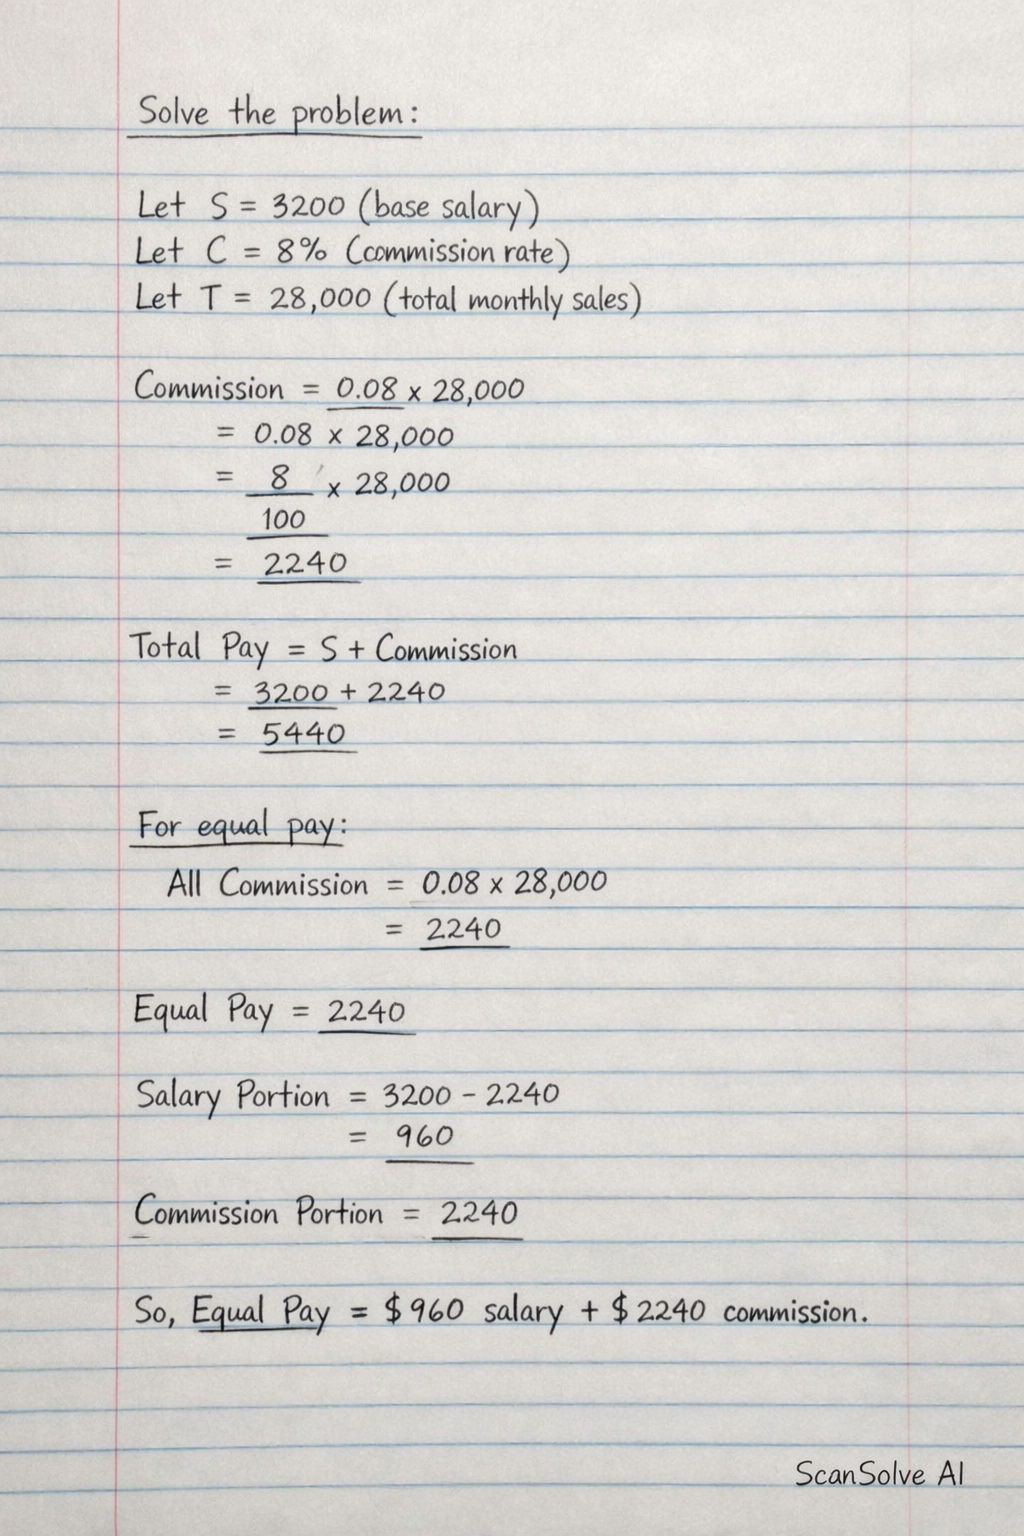 Solve the problem:
Let S = 3200 (base salary)
Let C = 8% (commission rate)
Let T = 28,000 (total monthly sales)
Commission = 0.08 x 28,000
= 0.08 x 28,000
= 8/100 x 28,000
= 2240
Total Pay = S + Commission
= 3200 + 2240
= 5440
For equal pay:
All Commission = 0.08 x 28,000
= 2240
Equal Pay = 2240
Salary Portion = 3200 - 2240
= 960
Commission Portion = 2240
So, Equal Pay = $960 salary + $2240 commission.
ScanSolve AI